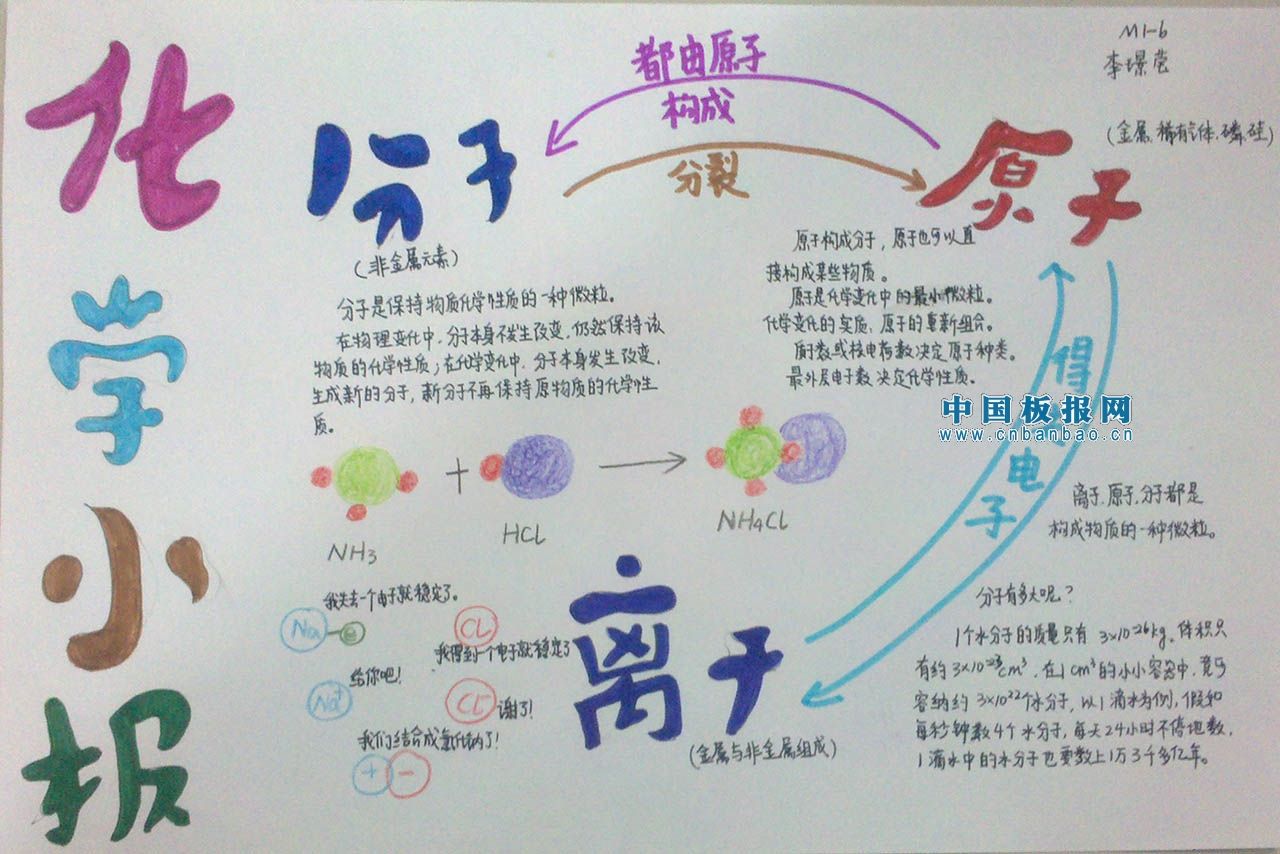 化
学
小
报
M1-6
李璟莹
都由原子
构成
分裂
分子
(非金属元素)
分子是保持物质化学性质的一种微粒。
在物理变化中，分子本身不发生改变，仍然保持该
物质的化学性质；在化学变化中，分子本身发生改变，
生成新的分子，新分子不再保持原物质的化学性
质。
原子
(金属、稀有气体、磷、硅)
原子构成分子，原子也可以直
接构成某些物质。
原子是化学变化中的最小微粒。
化学变化的实质：原子的重新组合。
质子数或核电荷数决定原子种类。
最外层电子数决定化学性质。
得
电
子
中国板报网
www.cnbanbao.cn
NH3
+
HCl
NH4Cl
离子
(金属与非金属组成)
我失去一个电子就稳定了。
Na
e
Cl
我得到一个电子就稳定了
给你吧！
Na+
Cl-
谢了！
我们结合成氯化钠了！
+ -
离子、原子、分子都是
构成物质的一种微粒。
分子有多大呢？
1个水分子的质量只有 3×10-26kg，体积只
有约3×10-23cm3，在1cm3的小小容器中，竟可
容纳约3×1022个水分子，以1滴水为例，假如
每秒钟数4个水分子，每天24小时不停地数，
1滴水中的水分子也要数上1万3千多亿年。